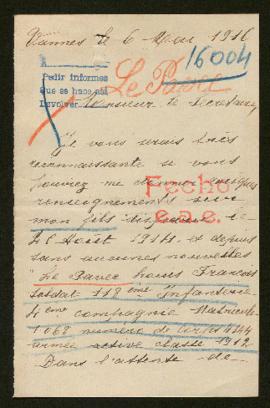 Vannes le 6 Mai 1916
16004
Pedir informes
que se hace así
Devolver
Le Pavec
Monsieur le Secrétaire
Je vous serais très
reconnaissante si vous
pouviez me donner quelques
renseignements sur
Fecho
e.a.e.
mon fils disparu le
Août 1914 et depuis
sans aucunes nouvelles
Le Pavec Louis François
soldat 118 ème Infanterie
4 ème compagnie Matricule
1068 numéro de corps 4344
armée active classe 1912
Dans l'attente de